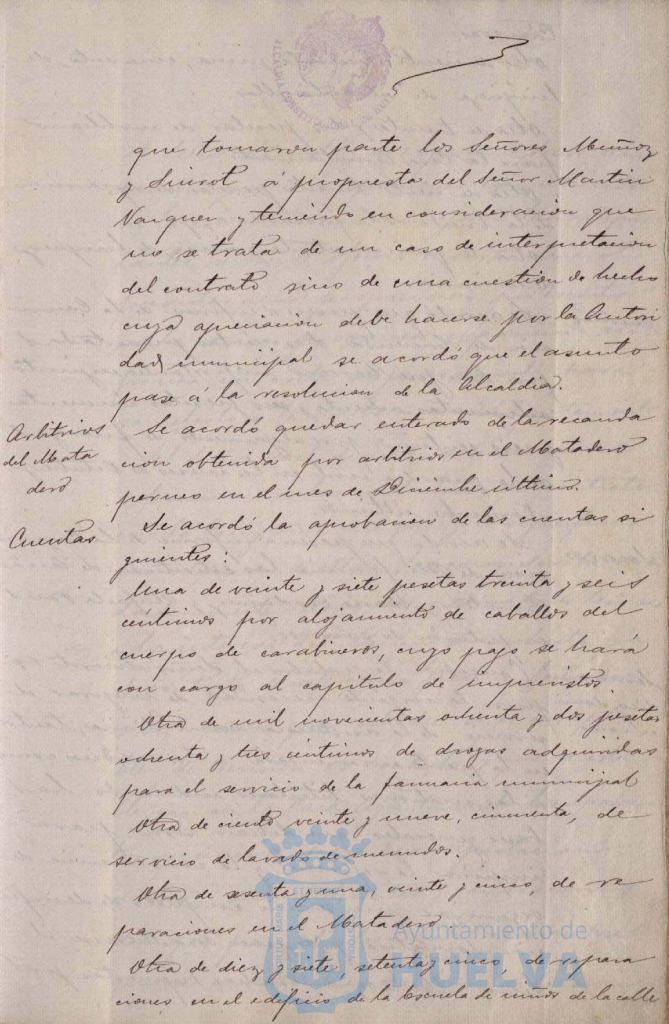 que tomaron parte los Señores Muñoz
y Sinrot á propuesta del Señor Martin
Vazquez y teniendo en consideracion que
no se trata de un caso de interpretacion
del contrato sino de una cuestion de hecho
cuya apreciacion debe hacerse por la Autori
dad municipal se acordó que el asunto
pase á la resolucion de la Alcaldia.
Arbitrios
del Mata
dero
Se acordó quedar enterado de la recauda
cion obtenida por arbitrios en el Matadero
perneo en el mes de Diciembre último.
Cuentas
Se acordó la aprobacion de las cuentas si
guientes:
Una de veinte y siete pesetas treinta y seis
céntimos por alojamiento de caballos del
cuerpo de carabineros, cuyo pago se hará
con cargo al capitulo de imprevistos.
Otra de mil novecientas ochenta y dos pesetas
ochenta y tres céntimos de drogas adquiridas
para el servicio de la farmacia municipal
Otra de ciento veinte y nueve, cincuenta, de
servicio de lavado de menudos.
Otra de sesenta y una, veinte y cinco, de re
paraciones en el Matadero
Otra de diez y siete, setenta y cinco, de repara
ciones en el edificio de la Escuela de niños de la calle
Ayuntamiento de
HUELVA